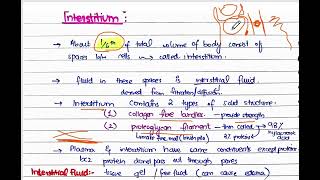 Interstitium :
→ About 1/6th of total volume of body consist of
spaces b/w cells → called interstitium.
→ fluid in these spaces is interstitial fluid.
derived from filtration/diffusion.
→ Interstitium contains 2 types of solid structure.
(1) collagen fiber bundles — provide strength
(2) proteoglycan filament → thin coiled → 98%
hyaluronic acid
2% protein
→ Plasma & interstitium have same constituents except proteins
bcz protein doesn't pass out through pores
Interstitial fluid:- tissue gel / free fluid (can cause edema)